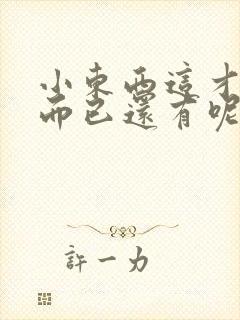 小東西這才
而已還有呢
許一力